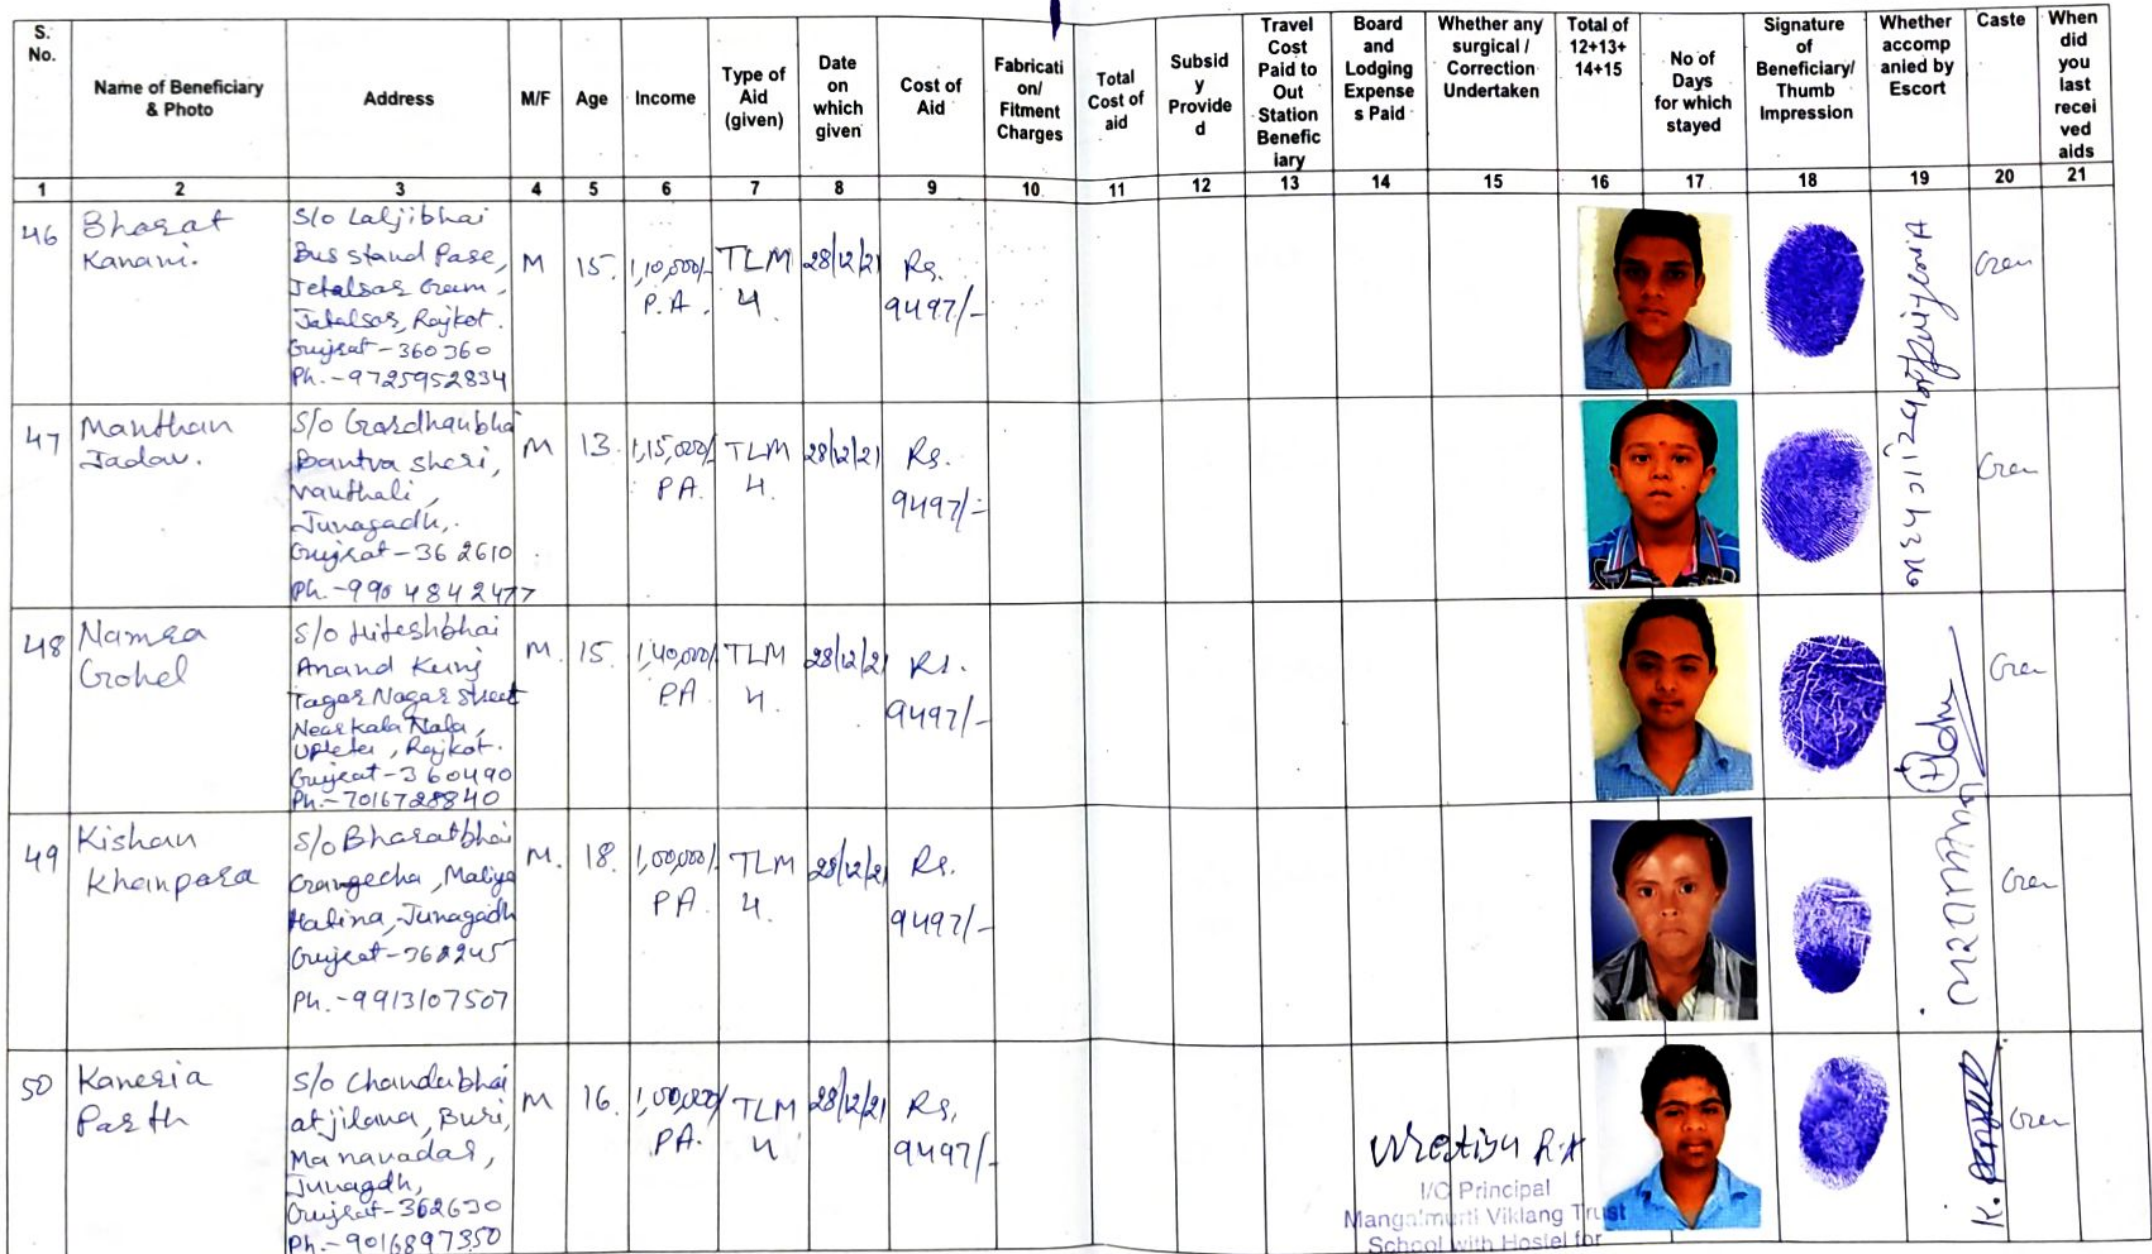 S. No.
Name of Beneficiary & Photo
Address
M/F
Age
Income
Type of Aid (given)
Date on which given
Cost of Aid
Fabricati on/ Fitment Charges
Total Cost of aid
Subsid y Provide d
Travel Cost Paid to Out Station Benefic iary
Board and Lodging Expense s Paid
Whether any surgical / Correction Undertaken
Total of 12+13+ 14+15
No of Days for which stayed
Signature of Beneficiary/ Thumb Impression
Whether accomp anied by Escort
Caste
When did you last recei ved aids
1 2 3 4 5 6 7 8 9 10 11 12 13 14 15 16 17 18 19 20 21
46
Bharat
Kanani.
S/o Laljibhai
Bus stand Pase,
Jetalsar Gram,
Jetalsar, Rajkot.
Gujrat-360360
Ph.-9725952834
M
15.
1,10,000/-
P.A.
TLM
4.
28/12/21
Rs.
9497/-
Gen
47
Manthan
Jadav.
S/o Gordhanbhai
Bantva sheri,
Vanthali,
Junagadh,
Gujrat-362610
Ph.-9904842477
M
13.
1,15,000/-
PA.
TLM
4.
28/12/21
Rs.
9497/-
Gen
48
Namra
Gohel
S/o Hiteshbhai
Anand Kunj
Tagor Nagar Street
Near Kala Nala,
Upleta, Rajkot.
Gujrat-360490
Ph.-7016728840
M.
15.
1,40,000/-
PA
TLM
4.
28/12/21
Rs.
9497/-
Gen
49
Kishan
Khanpara
S/o Bharatbhai
Gangecha, Maliya
Hatina, Junagadh
Gujrat-362245
Ph.-9913107507
M.
18.
1,00,000/-
PA.
TLM
4.
28/12/21
Rs.
9497/-
Gen
50
Kaneria
Parth
S/o Chandubhai
at jilana, Buri,
Manavadar,
Junagdh,
Gujrat-362630
Ph.-9016897350
M
16.
1,00,000/-
PA.
TLM
4
28/12/21
Rs.
9497/-
K.
Gen
R.A
I/C Principal
Mangalmurti Viklang Trust
School with Hostel for